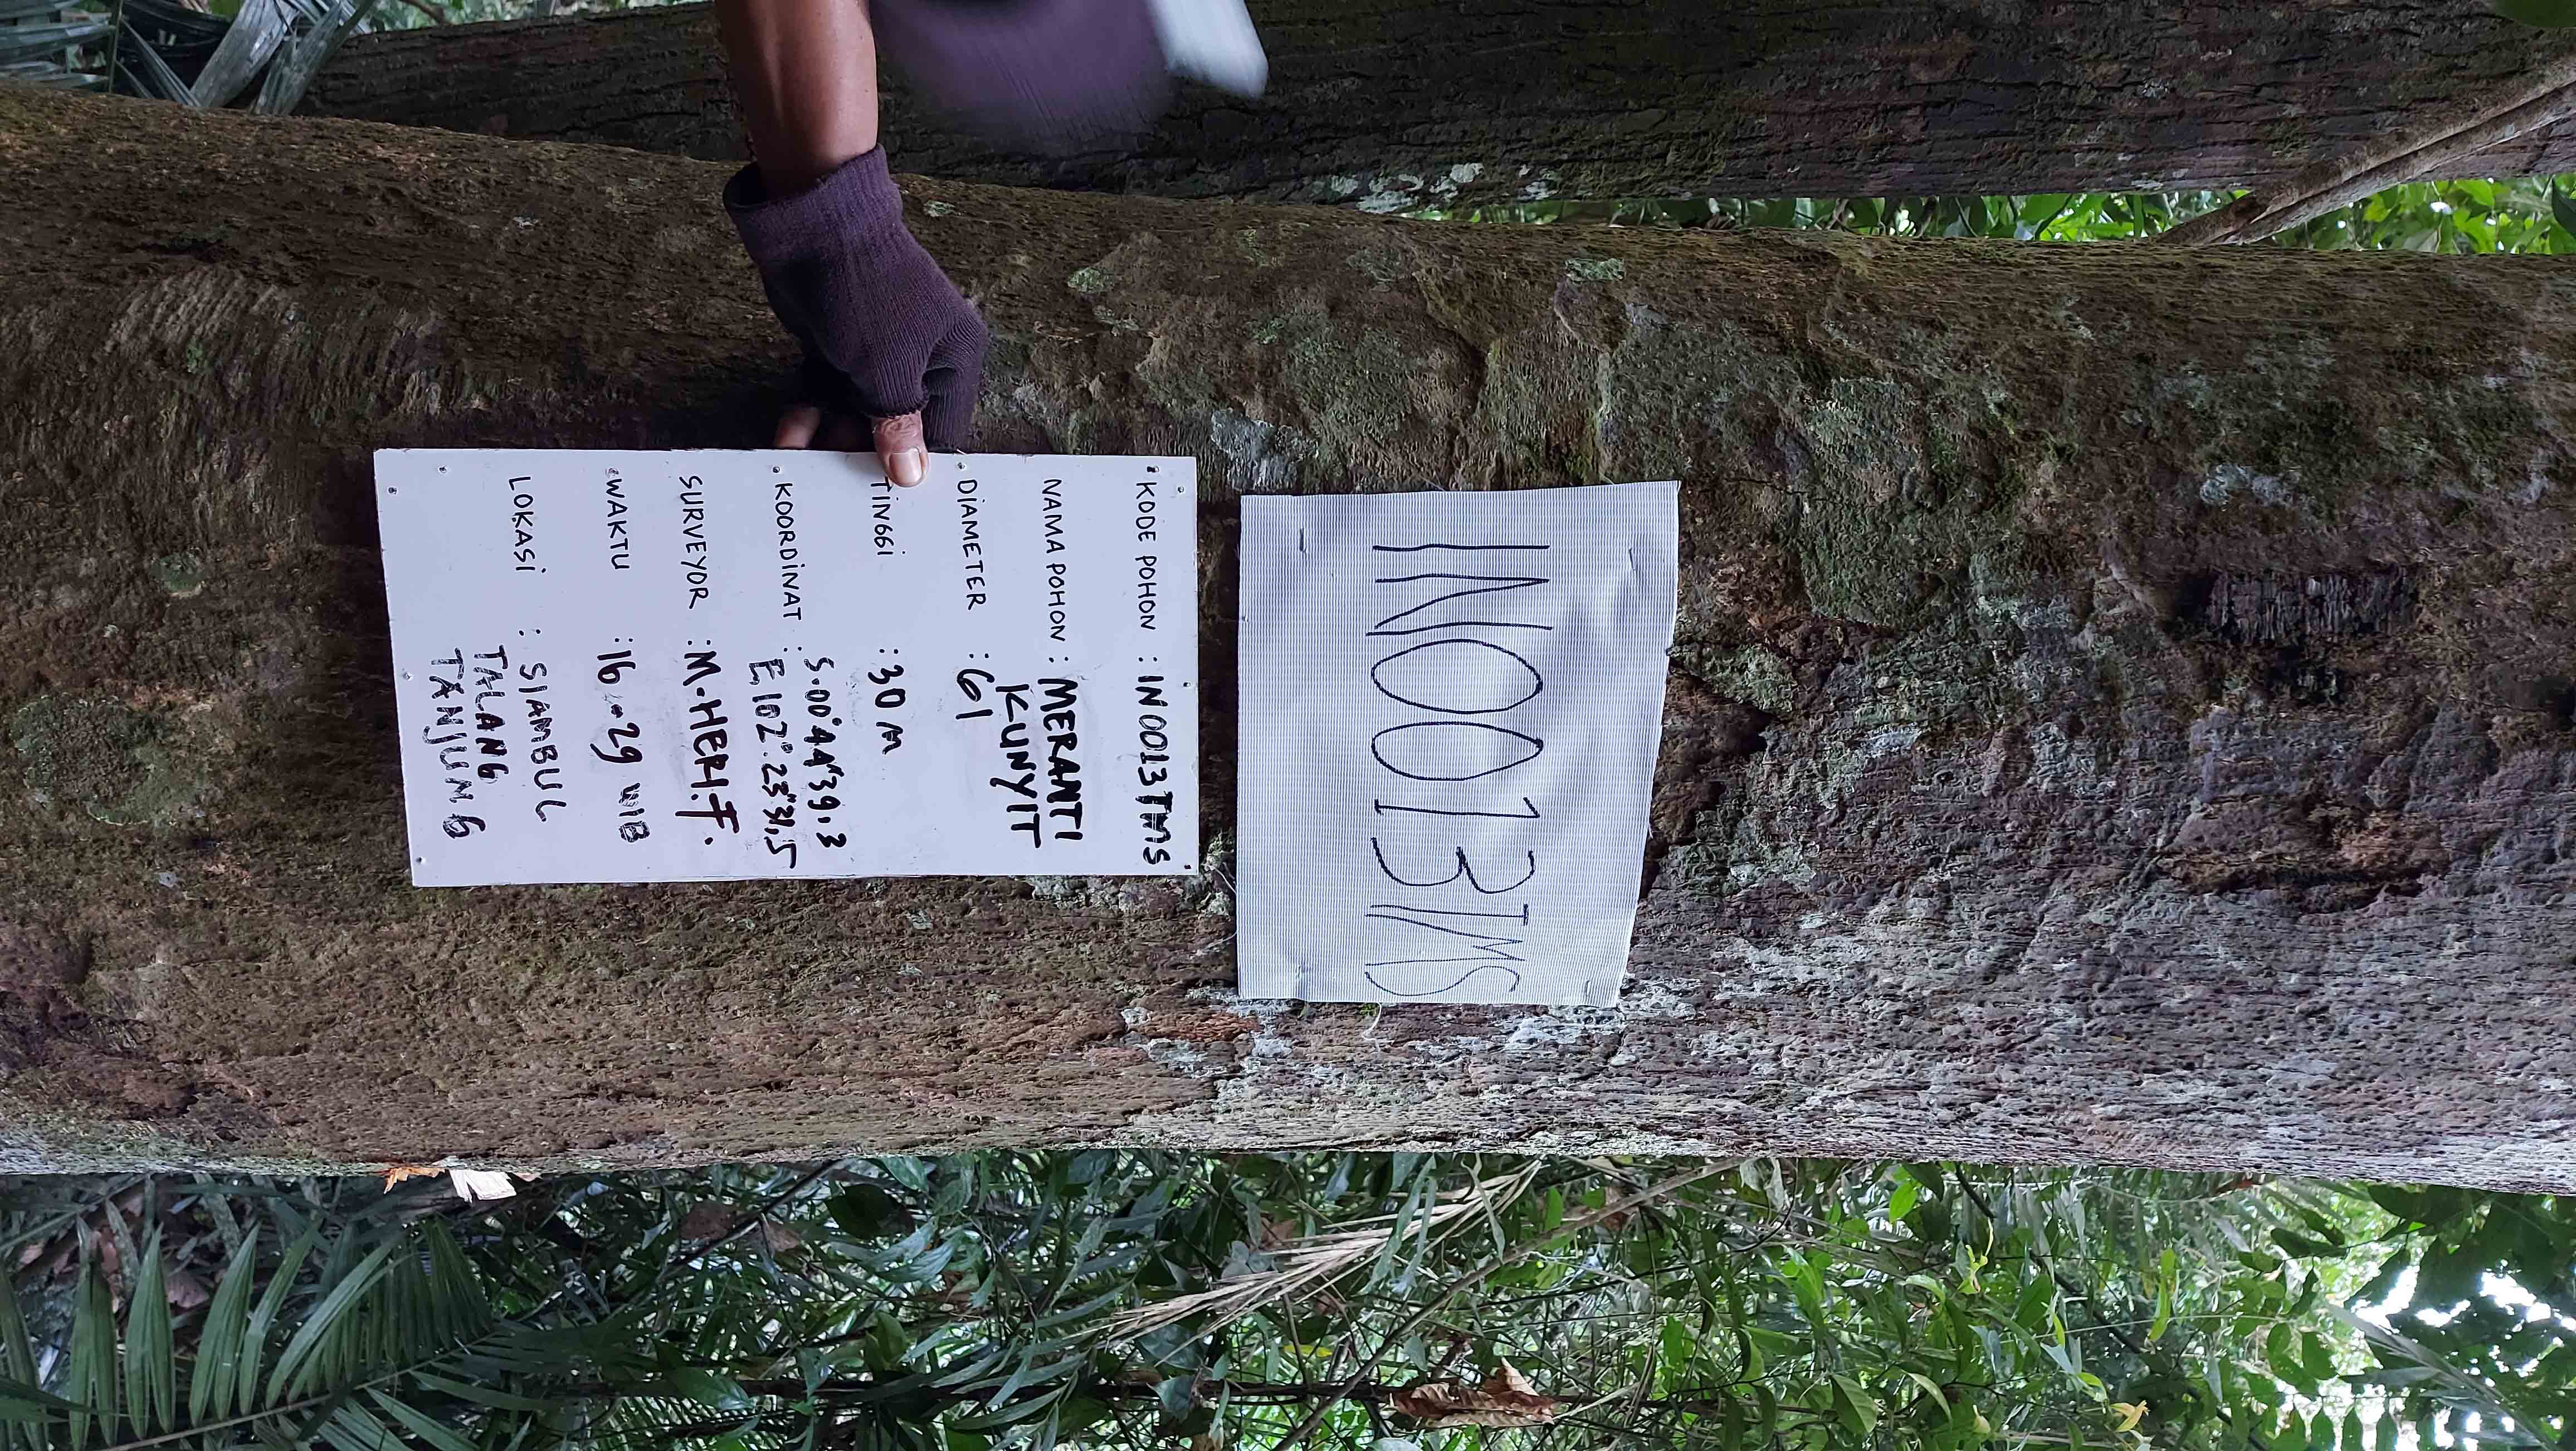 INO013TMS
KODE POHON : INO013TMS
NAMA POHON : MERANTI
KUNYIT
DIAMETER : 61
TINGGI : 30 M
KOORDINAT : S.00°44'39,3
E.102°.23'31,5
SURVEYOR : M.HERI.F.
WAKTU : 16.29 WIB
LOKASI : SIAMBUL
TALANG
TANJUNG